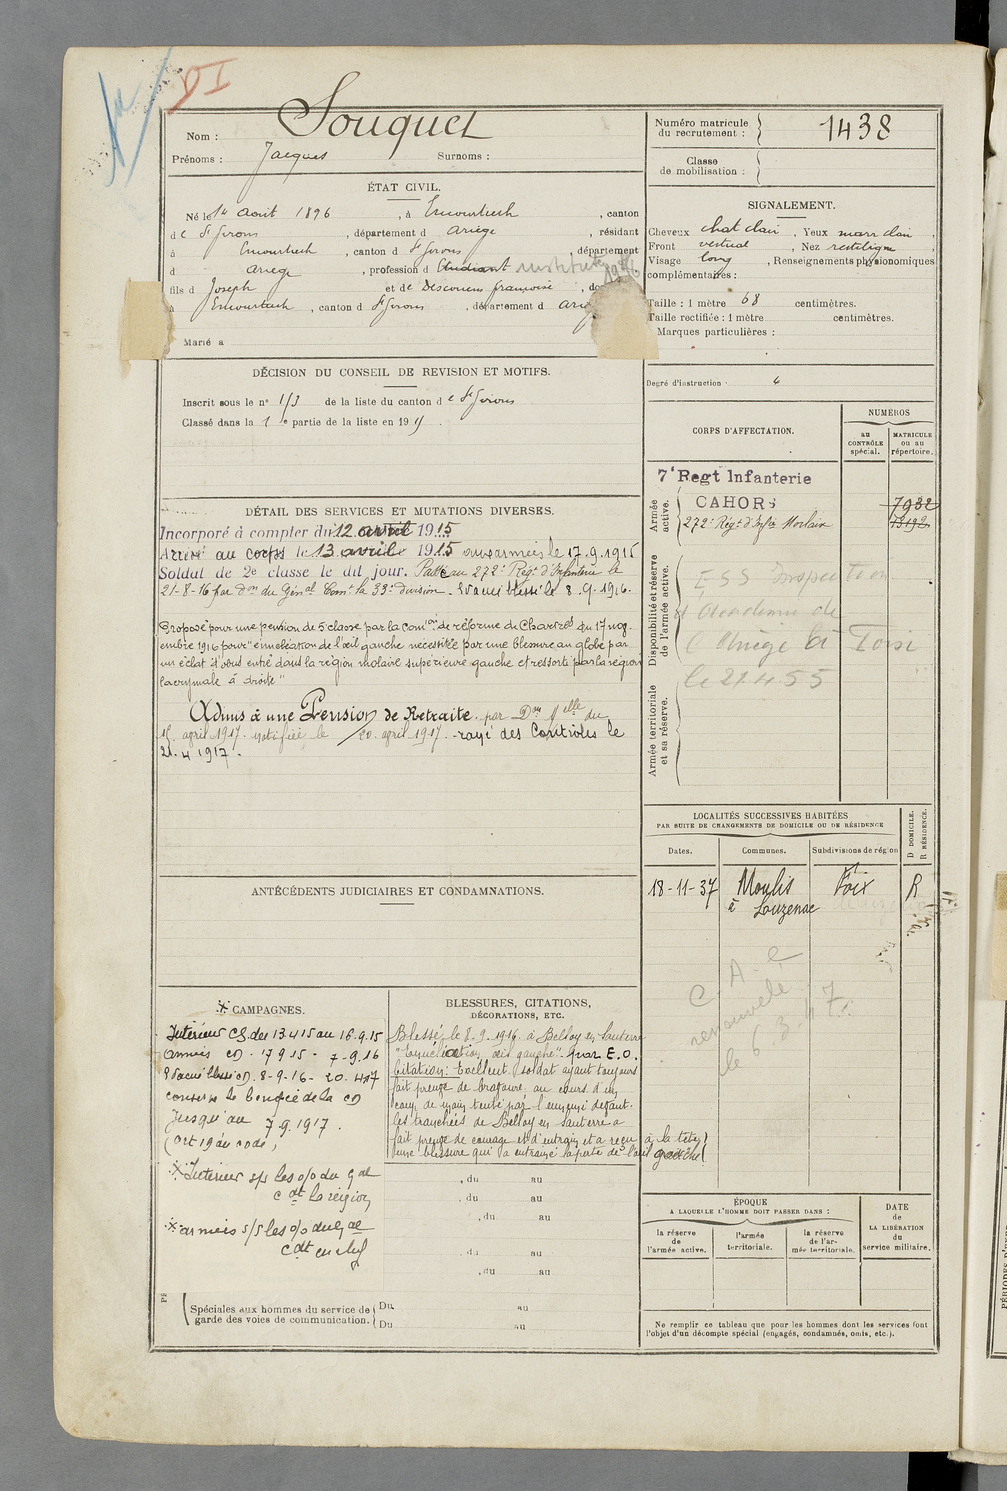 DI
Nom : Souquet
Prénoms : Jacques Surnoms :
Numéro matricule du recrutement : 1438
Classe de mobilisation :
ÉTAT CIVIL.
Né le 1er août 1896, à Encourtiech, canton
de St Girons, département d Ariège, résidant
à Encourtiech, canton d St Girons, département
d Ariège, profession d Etudiant instituteur
fils d Joseph et de Descouens françoise, do
à Encourtiech, canton d St Girons, département d Ariè
Marié à
SIGNALEMENT.
Cheveux chat clair. Yeux marr clair,
Front vertical, Nez rectiligne,
Visage long, Renseignements physionomiques
complémentaires :
Taille : 1 mètre 68 centimètres.
Taille rectifiée : 1 mètre centimètres.
Marques particulières :
Degré d'instruction : 4
DÉCISION DU CONSEIL DE REVISION ET MOTIFS.
Inscrit sous le n° de la liste du canton de St Girons
Classé dans la 1e partie de la liste en 19
DÉTAIL DES SERVICES ET MUTATIONS DIVERSES.
Incorporé à compter du 12 avril 1915
Arrivé au corps le 13 avril 1915 aux armées le 17.9.1915
Soldat de 2e classe le dit jour. Passé au 272e Régt d'Infanterie le
21-8-16 par Don du Génal Comt la 33e division. Evacué blessé le 8.9.1916.
Proposé pour une pension de 5e classe par la Comon de réforme de Chartres du 17 nov-
embre 1916 pour "enucléation de l'œil gauche nécessitée par une blessure au globe par
un éclat d'obus entré dans la région molaire supérieure gauche et ressorti par la région
lacrymale à droite"
Admis à une Pension de Retraite. par Don Melle du
15 avril 1917. notifiée le 20 avril 1917. rayé des Contrôles le
21.4.1917.
CORPS D'AFFECTATION.
NUMÉROS
au CONTRÔLE spécial.
MATRICULE ou au répertoire.
Armée active.
7e Regt Infanterie
CAHORS 7932
272e Régt d'Infie Morlaix 13192
Disponibilité et réserve de l'armée active.
Armée territoriale et sa réserve.
E S S Inspection
d'Académie de
l'Ariège à Foix
le 27.4.55
LOCALITÉS SUCCESSIVES HABITÉES
PAR SUITE DE CHANGEMENTS DE DOMICILE OU DE RÉSIDENCE
Dates. Communes. Subdivisions de région
D DOMICILE. R RÉSIDENCE.
18-11-37 Moulis Foix R
à Luzenac
C. A. C
renouvelé
le 6.3.47
ANTÉCÉDENTS JUDICIAIRES ET CONDAMNATIONS.
* CAMPAGNES.
Intérieur CS. du 13 4 15 au 16.9.15
Armées CD. 17 9 15 - 7-9.16
Evacué blessé CD. 8-9-16 - 20.4.17
conserve le bénéfice de la CD
jusqu'au 7.9.1917.
(art 19 du code)
* Intérieur s/s les o/o du Gal
Cdt la région
* armées s/s les o/o du Gal
Cdt en chef
Spéciales aux hommes du service de garde des voies de communication.
BLESSURES, CITATIONS,
DÉCORATIONS, ETC.
Blessé, le 8.9.1916. à Belloy en Santerre
"Enucléation œil gauche" par E.O.
Citation: Excellent soldat ayant toujours
fait preuve de bravoure, au cours d'un
coup de main tenté par l'ennemi devant
les tranchées de Belloy en Santerre a
fait preuve de courage et d'entrain et a reçu à la tête
une blessure qui a entraîné la perte de l'œil gauche
, du au
, du au
, du au
, du au
, du au
Du au
Du au
ÉPOQUE
A LAQUELLE L'HOMME DOIT PASSER DANS :
la réserve de l'armée active.
l'armée territoriale.
la réserve de l'armée territoriale.
DATE de LA LIBÉRATION du service militaire.
Ne remplir ce tableau que pour les hommes dont les services font
l'objet d'un décompte spécial (engagés, condamnés, omis, etc.).